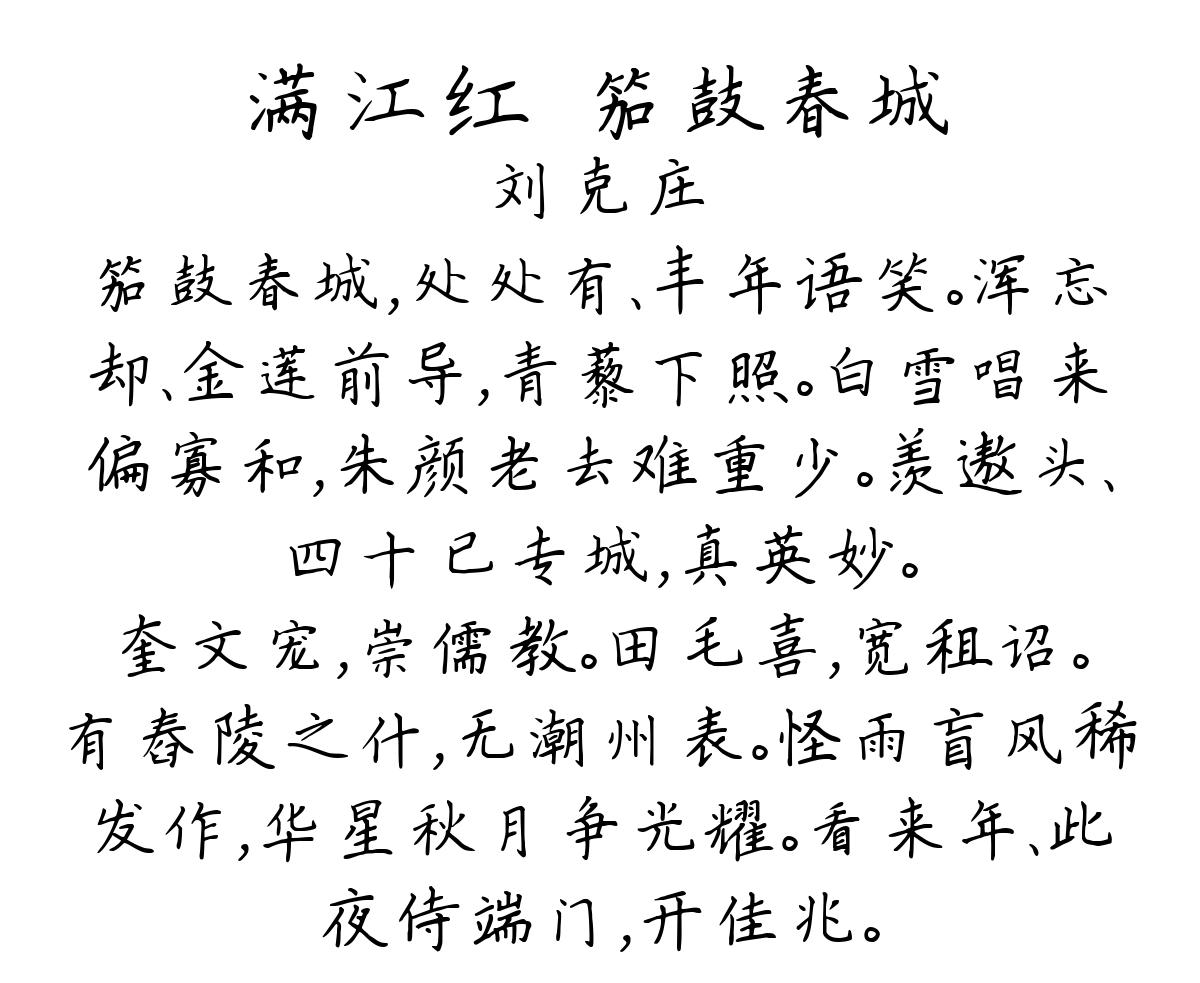 满江红 笳鼓春城
刘克庄
笳鼓春城,处处有、丰年语笑。浑忘
却、金莲前导,青藜下照。白雪唱来
偏寡和,朱颜老去难重少。羡遨头、
四十已专城,真英妙。
奎文宠,崇儒教。田毛喜,宽租诏。
有舂陵之什,无潮州表。怪雨盲风稀
发作,华星秋月争光耀。看来年、此
夜侍端门,开佳兆。